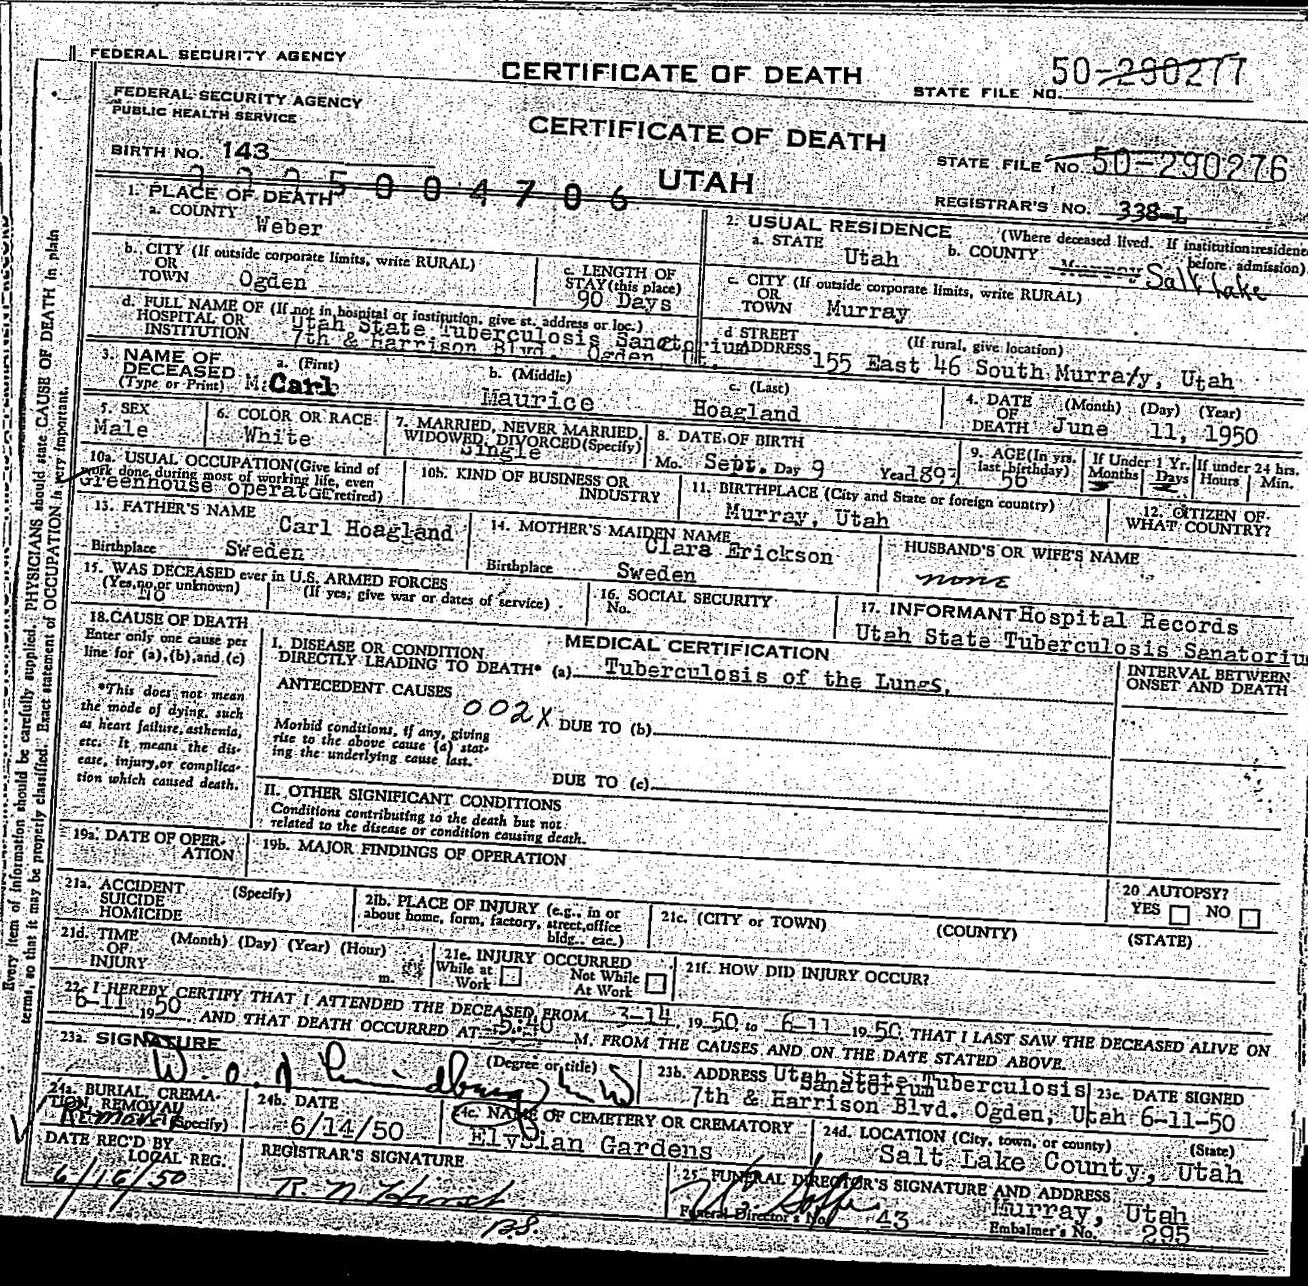 FEDERAL SECURITY AGENCY
CERTIFICATE OF DEATH
STATE FILE NO. 50-290277
FEDERAL SECURITY AGENCY
PUBLIC HEALTH SERVICE
CERTIFICATE OF DEATH
BIRTH NO. 143
STATE FILE NO. 50-290276
UTAH
REGISTRAR'S NO. 338-L
1. PLACE OF DEATH
a. COUNTY Weber
2. USUAL RESIDENCE (Where deceased lived. If institution: residence before admission)
a. STATE Utah b. COUNTY Salt Lake
b. CITY (If outside corporate limits, write RURAL)
OR
TOWN Ogden
c. LENGTH OF
STAY (this place)
90 Days
c. CITY (If outside corporate limits, write RURAL)
OR
TOWN Murray
d. FULL NAME OF (If not in hospital or institution, give st. address or loc.)
HOSPITAL OR
INSTITUTION
Utah State Tuberculosis Sanatorium
7th & Harrison Blvd. Ogden Ut.
d STREET (If rural, give location)
ADDRESS 155 East 46 South Murray, Utah
3. NAME OF
DECEASED
(Type or Print)
a. (First) Carl
b. (Middle) Maurice
c. (Last) Hoagland
4. DATE (Month) (Day) (Year)
OF
DEATH June 11, 1950
5. SEX
Male
6. COLOR OR RACE
White
7. MARRIED, NEVER MARRIED,
WIDOWED, DIVORCED (Specify)
Single
8. DATE OF BIRTH
Mo. Sept. Day 9 Year 1893
9. AGE (In yrs.
last birthday)
56
If Under 1 Yr.
Months Days
If under 24 hrs.
Hours Min.
10a. USUAL OCCUPATION (Give kind of
work done during most of working life, even
retired)
Greenhouse operator
10b. KIND OF BUSINESS OR
INDUSTRY
11. BIRTHPLACE (City and State or foreign country)
Murray, Utah
12. CITIZEN OF
WHAT COUNTRY?
13. FATHER'S NAME
Carl Hoagland
Birthplace Sweden
14. MOTHER'S MAIDEN NAME
Clara Erickson
Birthplace Sweden
HUSBAND'S OR WIFE'S NAME
none
15. WAS DECEASED ever in U.S. ARMED FORCES
(Yes, no, or unknown) (If yes, give war or dates of service)
No
16. SOCIAL SECURITY
No.
17. INFORMANT Hospital Records
Utah State Tuberculosis Sanatorium
18. CAUSE OF DEATH
Enter only one cause per
line for (a), (b), and (c)
*This does not mean
the mode of dying, such
as heart failure, asthenia,
etc. It means the dis-
ease, injury, or complica-
tion which caused death.
MEDICAL CERTIFICATION
I. DISEASE OR CONDITION
DIRECTLY LEADING TO DEATH* (a) Tuberculosis of the Lungs.
INTERVAL BETWEEN
ONSET AND DEATH
ANTECEDENT CAUSES
002X
DUE TO (b)
Morbid conditions, if any, giving
rise to the above cause (a) stat-
ing the underlying cause last.
DUE TO (c)
II. OTHER SIGNIFICANT CONDITIONS
Conditions contributing to the death but not
related to the disease or condition causing death.
19a. DATE OF OPER-
ATION
19b. MAJOR FINDINGS OF OPERATION
20 AUTOPSY?
YES NO
21a. ACCIDENT (Specify)
SUICIDE
HOMICIDE
21b. PLACE OF INJURY (e.g., in or
about home, form, factory, street, office
bldg., etc.)
21c. (CITY or TOWN) (COUNTY) (STATE)
21d. TIME (Month) (Day) (Year) (Hour)
OF
INJURY m.
21e. INJURY OCCURRED
While at Work Not While At Work
21f. HOW DID INJURY OCCUR?
22. I HEREBY CERTIFY THAT I ATTENDED THE DECEASED FROM 3-14, 1950 to 6-11 1950, THAT I LAST SAW THE DECEASED ALIVE ON
6-11 1950, AND THAT DEATH OCCURRED AT 5:40 M. FROM THE CAUSES AND ON THE DATE STATED ABOVE.
23a. SIGNATURE (Degree or title)
23b. ADDRESS Utah State Tuberculosis
Sanatorium
7th & Harrison Blvd. Ogden, Utah
23c. DATE SIGNED
6-11-50
24a. BURIAL CREMA-
TION REMOVAL
(Specify)
Removal
24b. DATE
6/14/50
24c. NAME OF CEMETERY OR CREMATORY
Elysian Gardens
24d. LOCATION (City, town, or county) (State)
Salt Lake County, Utah
DATE REC'D BY
LOCAL REG.
6/16/50
REGISTRAR'S SIGNATURE
25. FUNERAL DIRECTOR'S SIGNATURE AND ADDRESS
Murray, Utah
Funeral Director's No. 43 Embalmer's No. 295
Every item of information should be carefully supplied. PHYSICIANS should state CAUSE OF DEATH in plain
terms, so that it may be properly classified. Exact statement of OCCUPATION is very important.